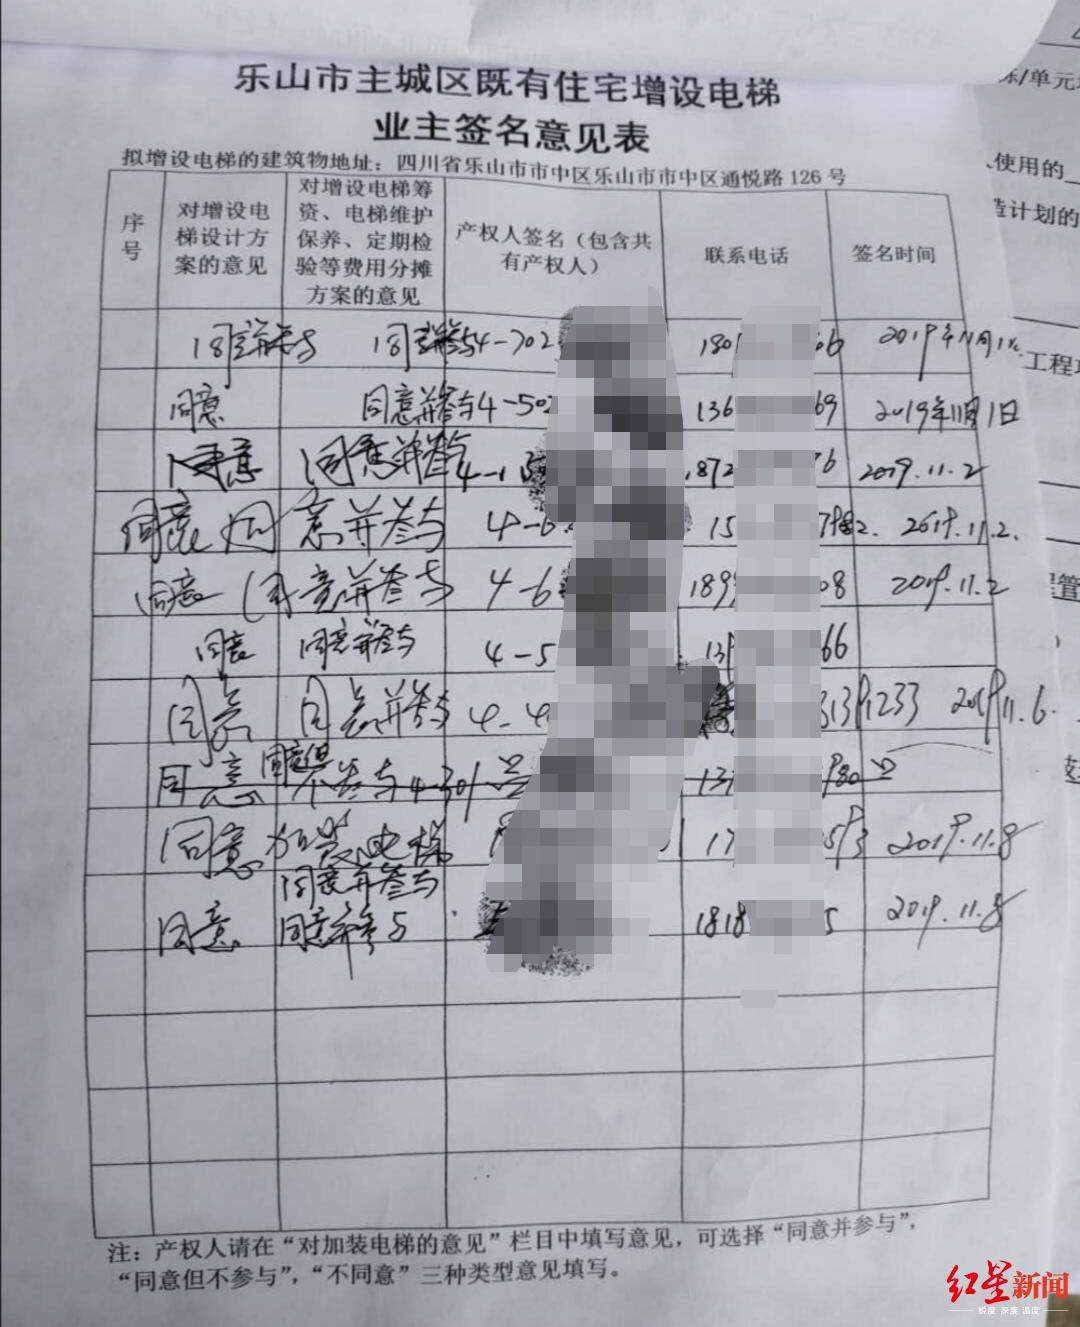 乐山市主城区既有住宅增设电梯
业主签名意见表
拟增设电梯的建筑物地址：四川省乐山市市中区乐山市市中区通悦路126号
序号 对增设电梯设计方案的意见 对增设电梯筹资、电梯维护保养、定期检验等费用分摊方案的意见 产权人签名（包含共有产权人） 联系电话 签名时间
同意并参与 同意并参与 4-702 180 66 2019年11月1
同意 同意并参与 4-502 136 69 2019年11月1日
同意 同意并参与 4-1 1872 76 2019.11.2
同意 同意并参与 4-6 15 2019.11.2.
同意 同意并参与 4-6 189 08 2019.11.2
同意 同意并参与 4-5 66
同意 同意并参与 4-4 1233 2019.11.6.
同意 同意但不参与 4-301 13 80
同意加装电梯 17 2019.11.8
同意并参与
同意 同意并参与 1818 5 2019.11.8
注：产权人请在“对加装电梯的意见”栏目中填写意见，可选择“同意并参与”，
“同意但不参与”，“不同意”三种类型意见填写。
/单元
使用的
造计划的
工程
程管
红星新闻
锐度 深度 温度